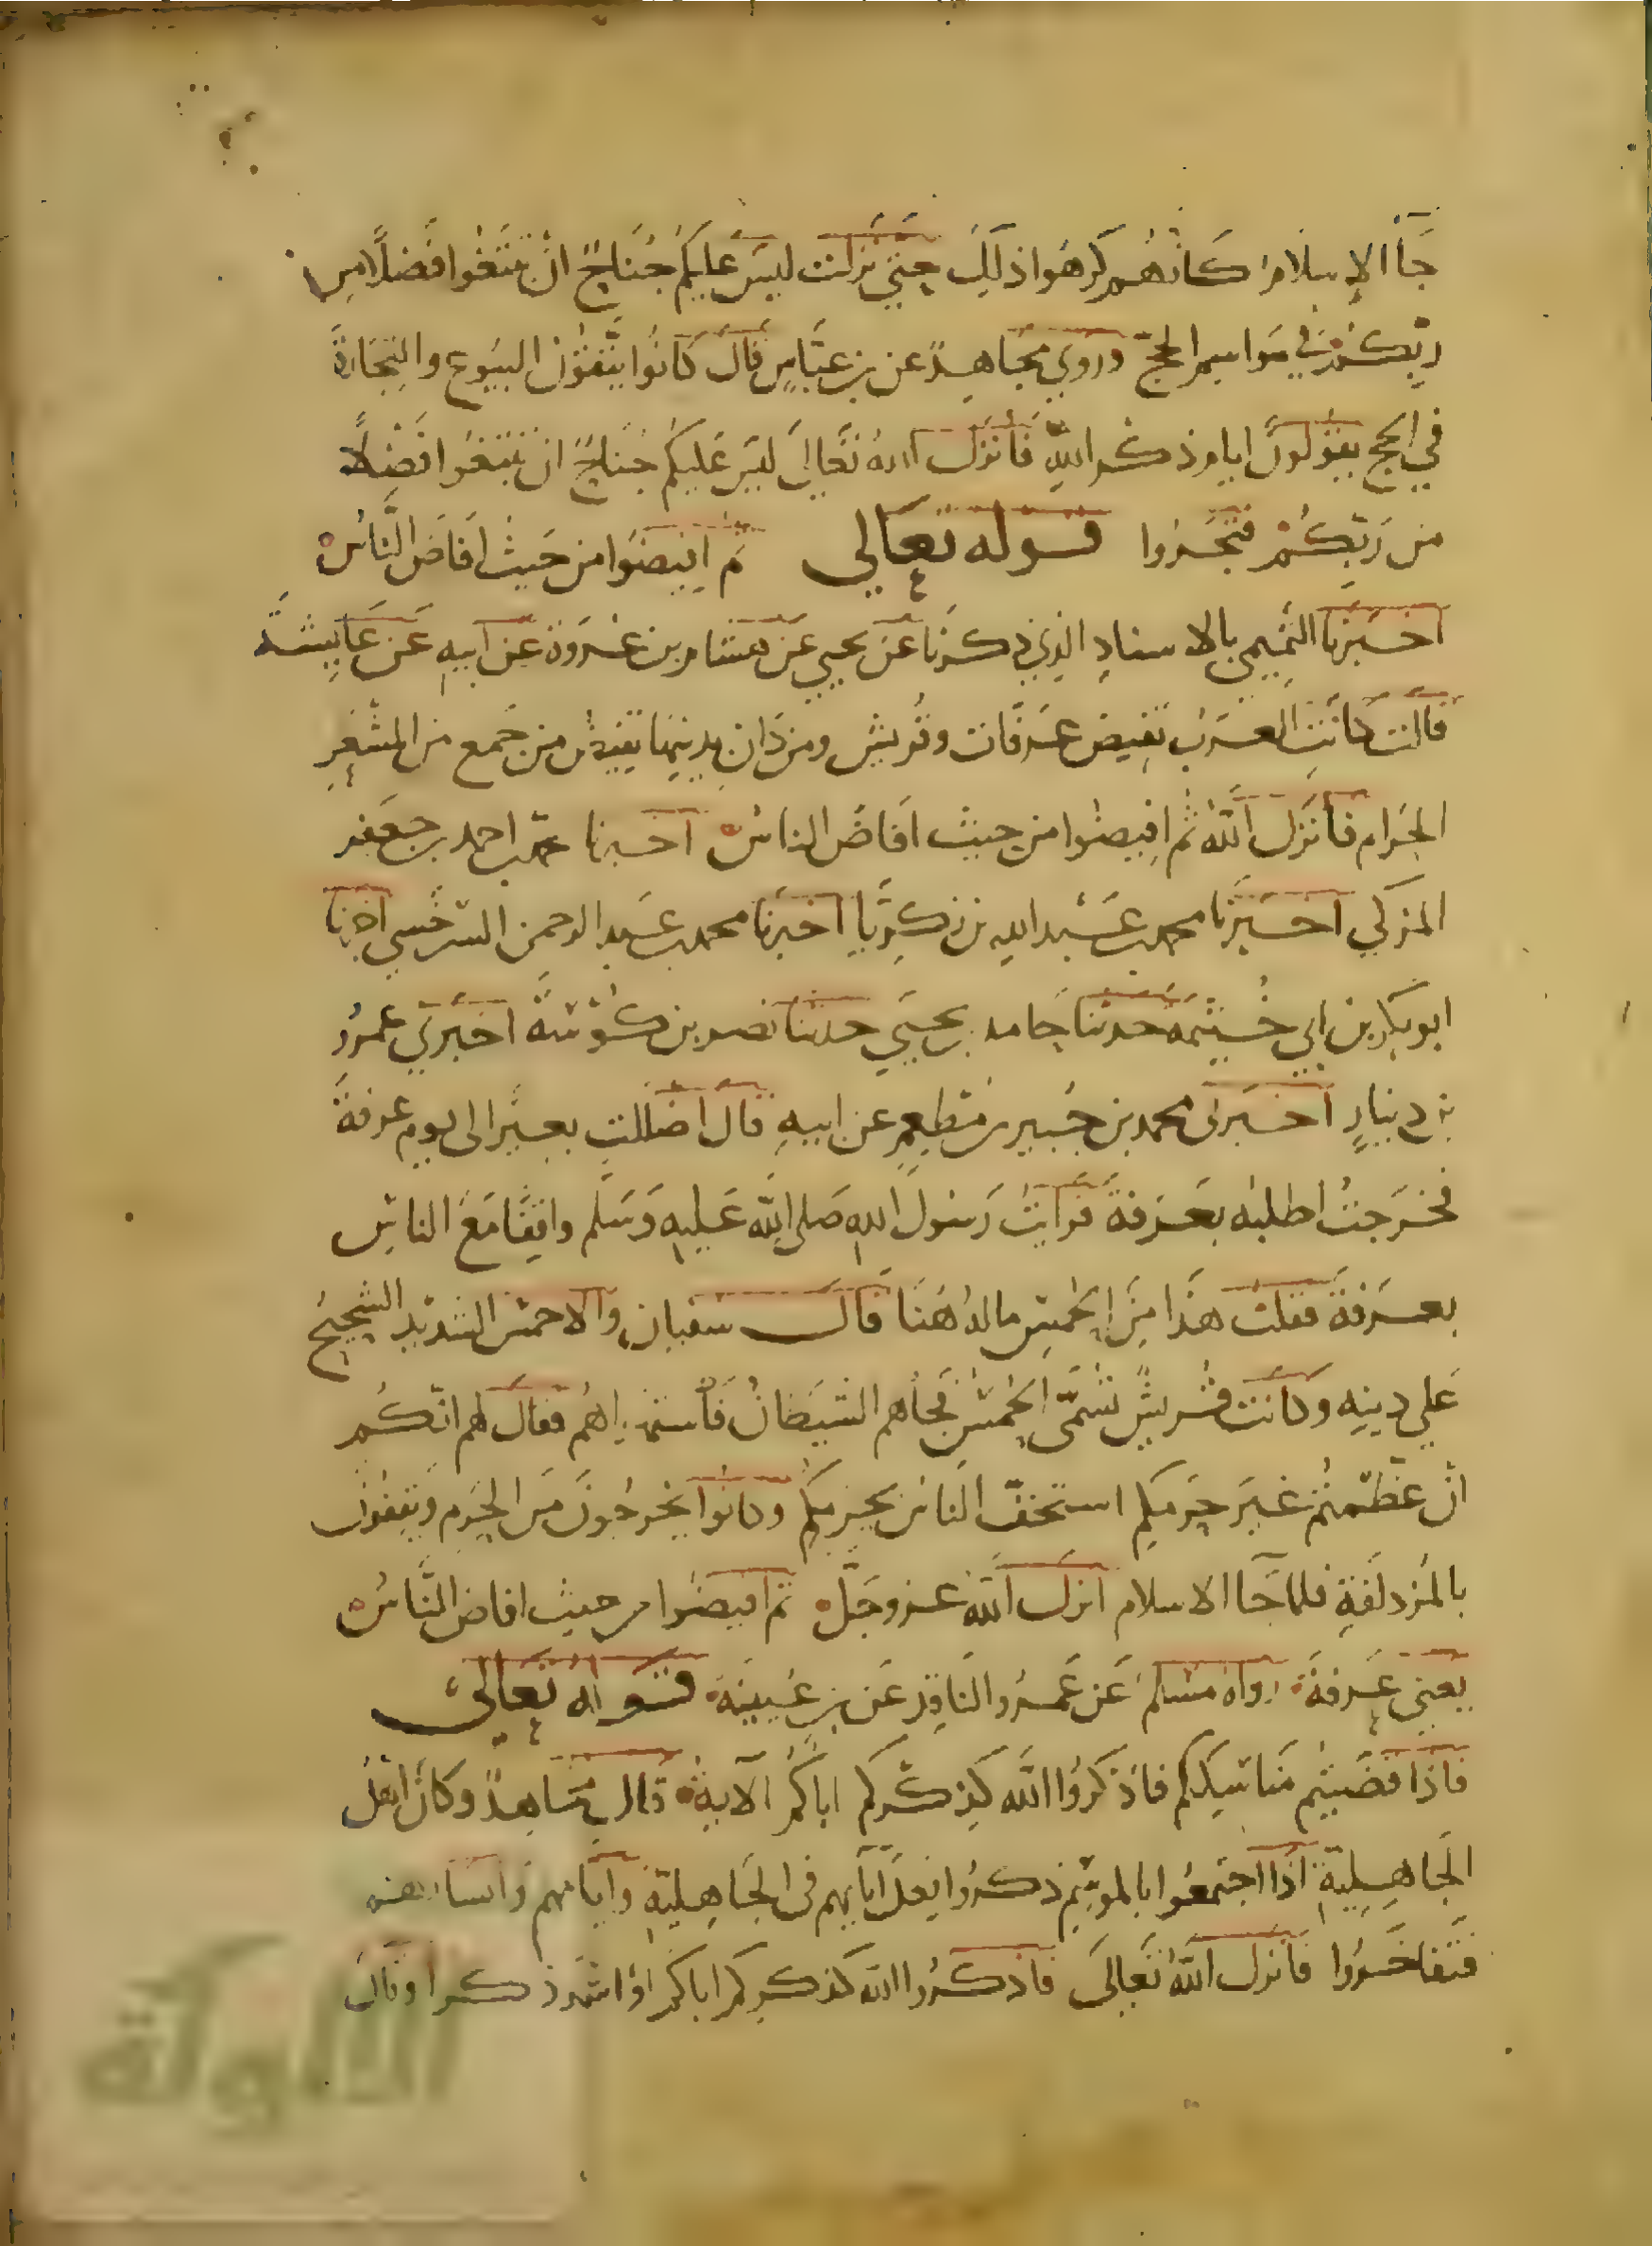 جَاَ الإسلَامُ كَانهُم كَرِهُوا ذَلِكَ حَتي نَزلت لَيسَ عَلَيكُم جُنَاحٌ ان تَبتَغُوا فَضلًا من
رَبِّكُم في مَواسِمِ الحجّ وَرَوي مجَاهِدٌ عن بن عبَّاسٍ قَالَ كَانُوا يتَّقُونَ البيُوع والتِجَارَةَ
في الحج يَقُولُونَ ايام ذكر اللهِ فَأنزَلَ اللهُ تَعَالىَ لَيسَ عَلَيكُم جُنَاحٌ ان تَبتَغُوا فَضلًا
من رَبِّكُمْ فتجَروا قوله تعَالي ثم افِيضُوا من حَيثُ افَاضَ النَّاسُ
اخبَرَنا التَّمِيمي بالاسنادِ الذِي ذكرنَا عَن يحيي عَن هشام بن عُروَة عَن ابيهِ عَن عَايِشَة
قالت كانَتِ العَرَبُ تفِيض عَرَفَات وقُريش ومن دَان بدينهَا تفِيضُ من جَمع من المَشْعَرِ
الحَرام فأنزَل اللَّهُ ثم افِيضُوا من حيث افَاضَ الناسُ اخبرنا محمد بن احمد بن جعفر
المزكي اخبَرَنَا محمد بن عَبْد الله بن زكريَّا اخبرنا محمد بن عَبد الرحمن السَّرخَسي اخبرنا
ابوبكر بن ابي خُثيَمَة حدثنا حَامد بن يحيَي حدثنا نصر بن كُوسَة اخبَرَني عَمرُو
بن دينارٍ اخبَرَنى محمد بن جُبير بن مُطعِمٍ عن ابيهِ قال اضللتُ بعيرًا لي يوم عرفةَ
فخَرَجتُ اطلبُه بعَرَفة فرَايتُ رَسُولَ اللهِ صَلى اللَّه عَليهِ وَسَلم واقِفًا مَعَ الناسِ
بعَرَفةَ فقلتُ هَذَا مِنَ الحُمسِ مالهُ هَهُنا قَالَ سفيان والاحمَسُ الشَديد الشحِيح
عَلي دينِهِ وكانت قُريشٌ تُسَمَّى الحُمسَ فجَأهم الشَيطَانُ فَأستهواهُم فقالَ لهم انّكُم
ان عَظّمتُم غَيرَ حَرَمِكم استخفّ النَاسُ بحرمِكُم وكانُوا لا يخرجُونَ مِنَ الحَرَم وَيَقِفُونَ
بالمُزدلفَةِ فلمَا جَاَ الاسلام انزَل اللَّهُ عز وجَلَّ ثم افيضُوا من حيث افاض النَّاسُ
يَعني عَرفةَ رواهُ مسلم عَن عَمرو النَاقِد عَن بن عُيينَةَ قوله تعَالىَ
فَاذَا قضَيتُم مَنَاسِكَكُم فاذكرُوا اللَّه كَذِكْرِكم اباكُمُ الآية قَالَ مجَاهدٌ وَكَان اهْلُ
الجَاهِلِيةِ اذَا اجتمعُوا بالموسِم ذكرُوا فِعلَ آبَآيِهم في الجَاهِليةِ وَأيَّامَهم وَأنسَابهم
فتَفاخَرُوا فَانزل اللَّه تعَالىَ فَاذكرُوا اللَّه كذكركم اباكم اوْ اشَد ذكرا وقالَ
الألوكة